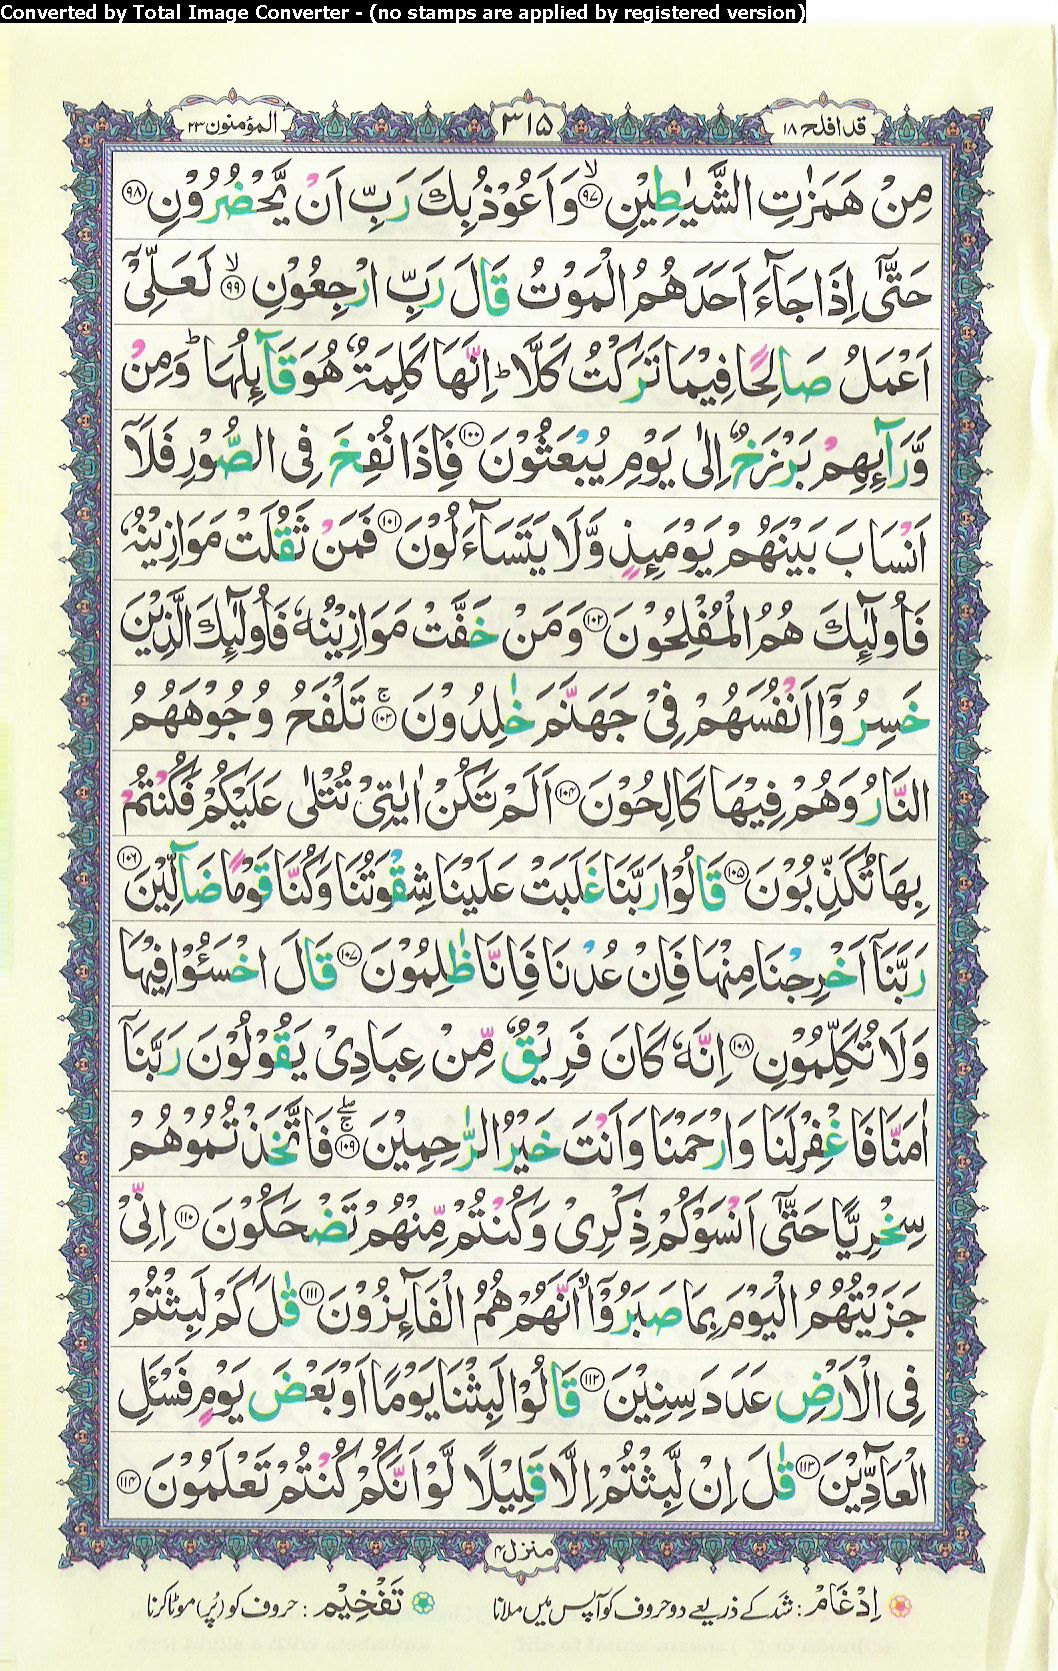 Converted by Total Image Converter - (no stamps are applied by registered version)
قد افلح ۱۸
۳۱۵
المؤمنون ۲۳
مِنْ هَمَزٰتِ الشَّيٰطِيْنِ ﴿ۙ۹۷﴾ وَاَعُوْذُ بِكَ رَبِّ اَنْ يَّحْضُرُوْنِ ﴿۹۸﴾
حَتّٰٓى اِذَا جَآءَ اَحَدَهُمُ الْمَوْتُ قَالَ رَبِّ ارْجِعُوْنِ ﴿ۙ۹۹﴾ لَعَلِّىْٓ
اَعْمَلُ صَالِحًا فِيْمَا تَرَكْتُ كَلَّا ؕ اِنَّهَا كَلِمَةٌ هُوَ قَآٮِٕلُهَا ؕ وَمِنْ
وَّرَآٮِٕهِمْ بَرْزَخٌ اِلٰى يَوْمِ يُبْعَثُوْنَ ﴿۱۰۰﴾ فَاِذَا نُفِخَ فِى الصُّوْرِ فَلَآ
اَنْسَابَ بَيْنَهُمْ يَوْمَٮِٕذٍ وَّلَا يَتَسَآءَلُوْنَ ﴿۱۰۱﴾ فَمَنْ ثَقُلَتْ مَوَازِيْنُهٗ
فَاُولٰٓٮِٕكَ هُمُ الْمُفْلِحُوْنَ ﴿۱۰۲﴾ وَمَنْ خَفَّتْ مَوَازِيْنُهٗ فَاُولٰٓٮِٕكَ الَّذِيْنَ
خَسِرُوْۤا اَنْفُسَهُمْ فِىْ جَهَنَّمَ خٰلِدُوْنَ ﴿ۚ۱۰۳﴾ تَلْفَحُ وُجُوْهَهُمُ
النَّارُ وَهُمْ فِيْهَا كَالِحُوْنَ ﴿۱۰۴﴾ اَلَمْ تَكُنْ اٰيٰتِىْ تُتْلٰى عَلَيْكُمْ فَكُنْتُمْ
بِهَا تُكَذِّبُوْنَ ﴿۱۰۵﴾ قَالُوْا رَبَّنَا غَلَبَتْ عَلَيْنَا شِقْوَتُنَا وَكُنَّا قَوْمًا ضَآلِّيْنَ ﴿۱۰۶﴾
رَبَّنَآ اَخْرِجْنَا مِنْهَا فَاِنْ عُدْنَا فَاِنَّا ظٰلِمُوْنَ ﴿۱۰۷﴾ قَالَ اخْسَئُوْا فِيْهَا
وَلَا تُكَلِّمُوْنِ ﴿۱۰۸﴾ اِنَّهٗ كَانَ فَرِيْقٌ مِّنْ عِبَادِىْ يَقُوْلُوْنَ رَبَّنَآ
اٰمَنَّا فَاغْفِرْ لَنَا وَارْحَمْنَا وَاَنْتَ خَيْرُ الرّٰحِمِيْنَ ﴿ۖۚ۱۰۹﴾ فَاتَّخَذْتُمُوْهُمْ
سِخْرِيًّا حَتّٰٓى اَنْسَوْكُمْ ذِكْرِىْ وَكُنْتُمْ مِّنْهُمْ تَضْحَكُوْنَ ﴿۱۱۰﴾ اِنِّىْ
جَزَيْتُهُمُ الْيَوْمَ بِمَا صَبَرُوْۤا ۙ اَنَّهُمْ هُمُ الْفَآٮِٕزُوْنَ ﴿۱۱۱﴾ قٰلَ كَمْ لَبِثْتُمْ
فِى الْاَرْضِ عَدَدَ سِنِيْنَ ﴿۱۱۲﴾ قَالُوْا لَبِثْنَا يَوْمًا اَوْ بَعْضَ يَوْمٍ فَسْـَٔلِ
الْعَآدِّيْنَ ﴿۱۱۳﴾ قٰلَ اِنْ لَّبِثْتُمْ اِلَّا قَلِيْلًا لَّوْ اَنَّكُمْ كُنْتُمْ تَعْلَمُوْنَ ﴿۱۱۴﴾
منزل ۴
اِدْغَامْ : شد کے ذریعے دو حروف کو آپس میں ملانا
تَفْخِيْم : حروف کو (پُر) موٹا کرنا